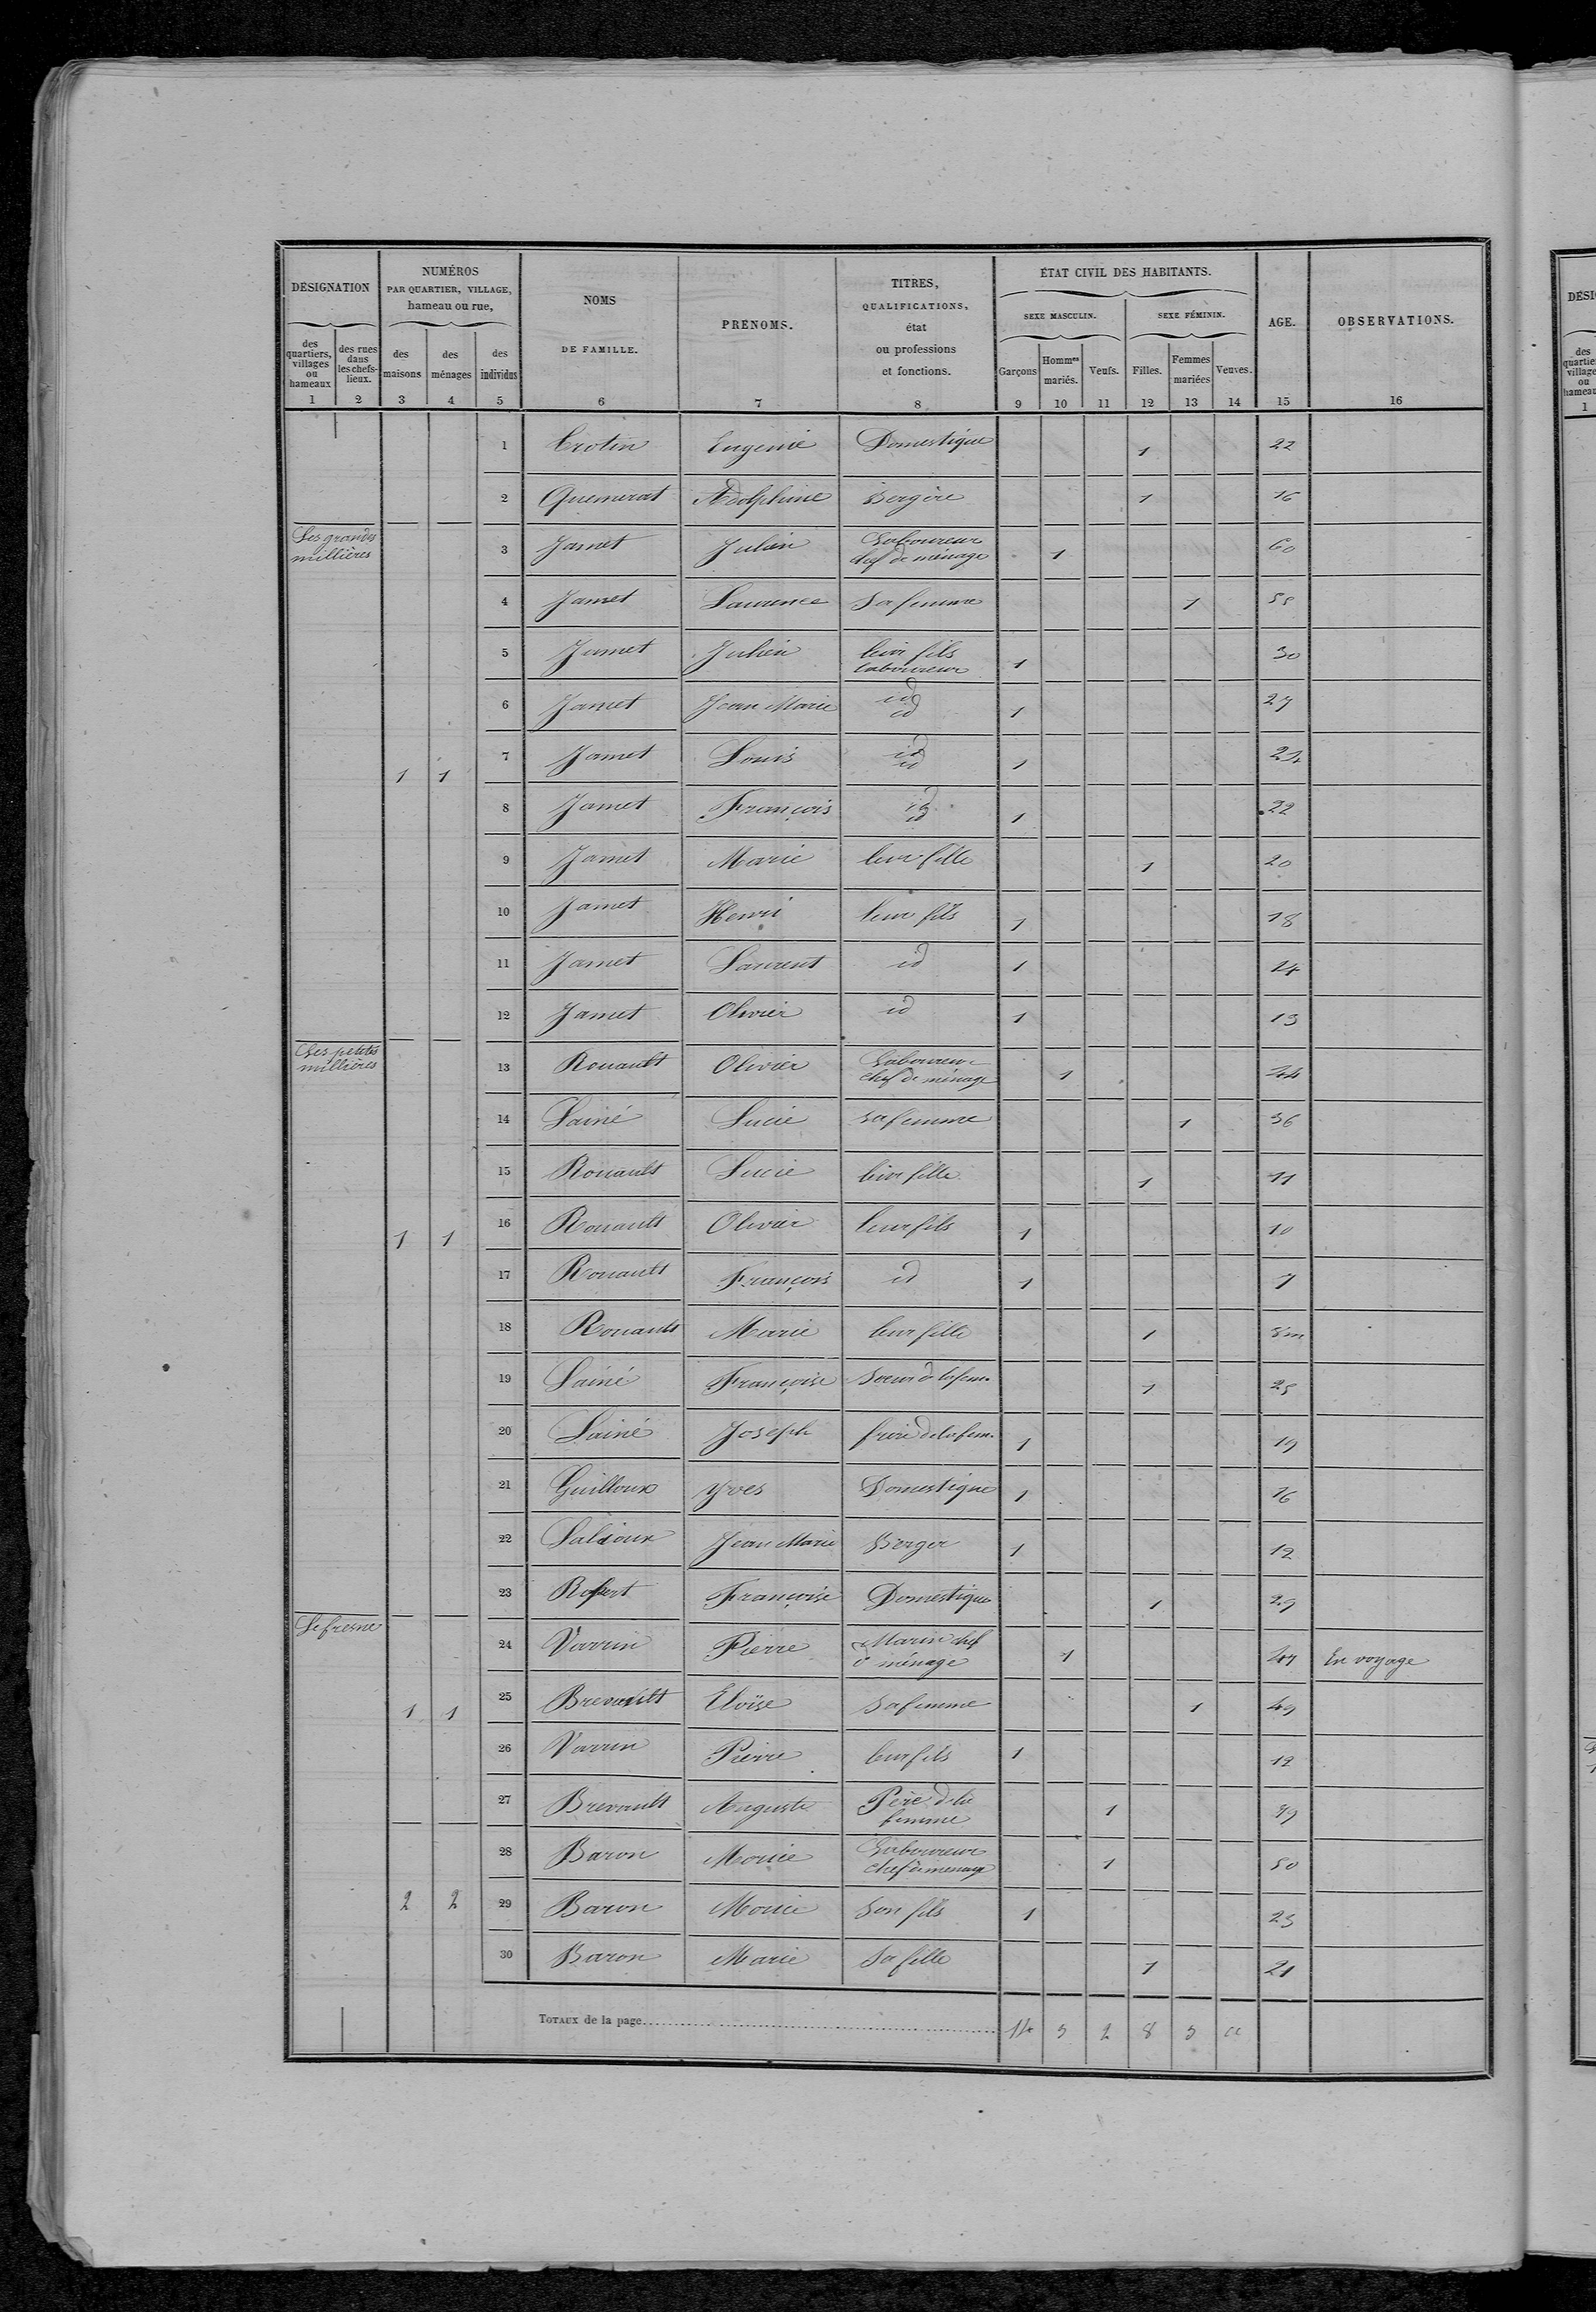 DESIGNATION
NUMÉROS
PAR QUARTIER, VILLAGE,
hameau ou rue,
NOMS
DE FAMILLE.
PRENOMS.
TITRES,
QUALIFICATIONS,
état
ou professions
et fonctions.
ÉTAT CIVIL DES HABITANTS.
SEXE MASCULIN.
SEXE FÉMININ.
AGE.
OBSERVATIONS.
des quartiers, villages ou hameaux
des rues dans les chefs-lieux.
des maisons
des ménages
des individus
Garçons
Hommes mariés.
Veufs.
Filles.
Femmes mariées
Veuves.
1 2 3 4 5 6 7 8 9 10 11 12 13 14 15 16
1 Crotin Eugenie Domestique 1 22
2 Quemerat Adolphine Bergère 1 16
Les grandes millières
3 Jamet Julien Laboureur chef de ménage 1 60
4 Jamet Laurence Sa femme 1 55
5 Jamet Julien leur fils laboureur 1 30
6 Jamet Jean Marie id id 1 27
1 1 7 Jamet Louis id id 1 24
8 Jamet François id id 1 22
9 Jamet Marie leur fille 1 20
10 Jamet Henri leur fils 1 18
11 Jamet Laurent id 1 14
12 Jamet Olivier id 1 13
Les petites millières
13 Rouault Olivier Laboureur chef de ménage 1 44
14 Lainé Lucie sa femme 1 36
15 Rouault Lucie leur fille 1 11
1 1 16 Rouault Olivier leur fils 1 10
17 Rouault François id 1 7
18 Rouault Marie leur fille 1 8m
19 Lainé Françoise Soeur de la fem. 1 25
20 Lainé Joseph frère de la fem. 1 19
21 Guilloux Yves Domestique 1 16
22 Salioux Jean Marie Berger 1 12
23 Robert Françoise Domestique 1 29
Le fresne
24 Varrin Pierre Marin chef d ménage 1 47 En voyage
1 1 25 Brevault Eloïse Sa femme 1 49
26 Varrin Pierre leur fils 1 12
27 Brevault Auguste Père de la femme 1 89
28 Baron Morice Laboureur chef de menage 1 50
2 2 29 Baron Morice Son fils 1 23
30 Baron Marie Sa fille 1 21
TOTAUX de la page 14 3 2 8 3 "